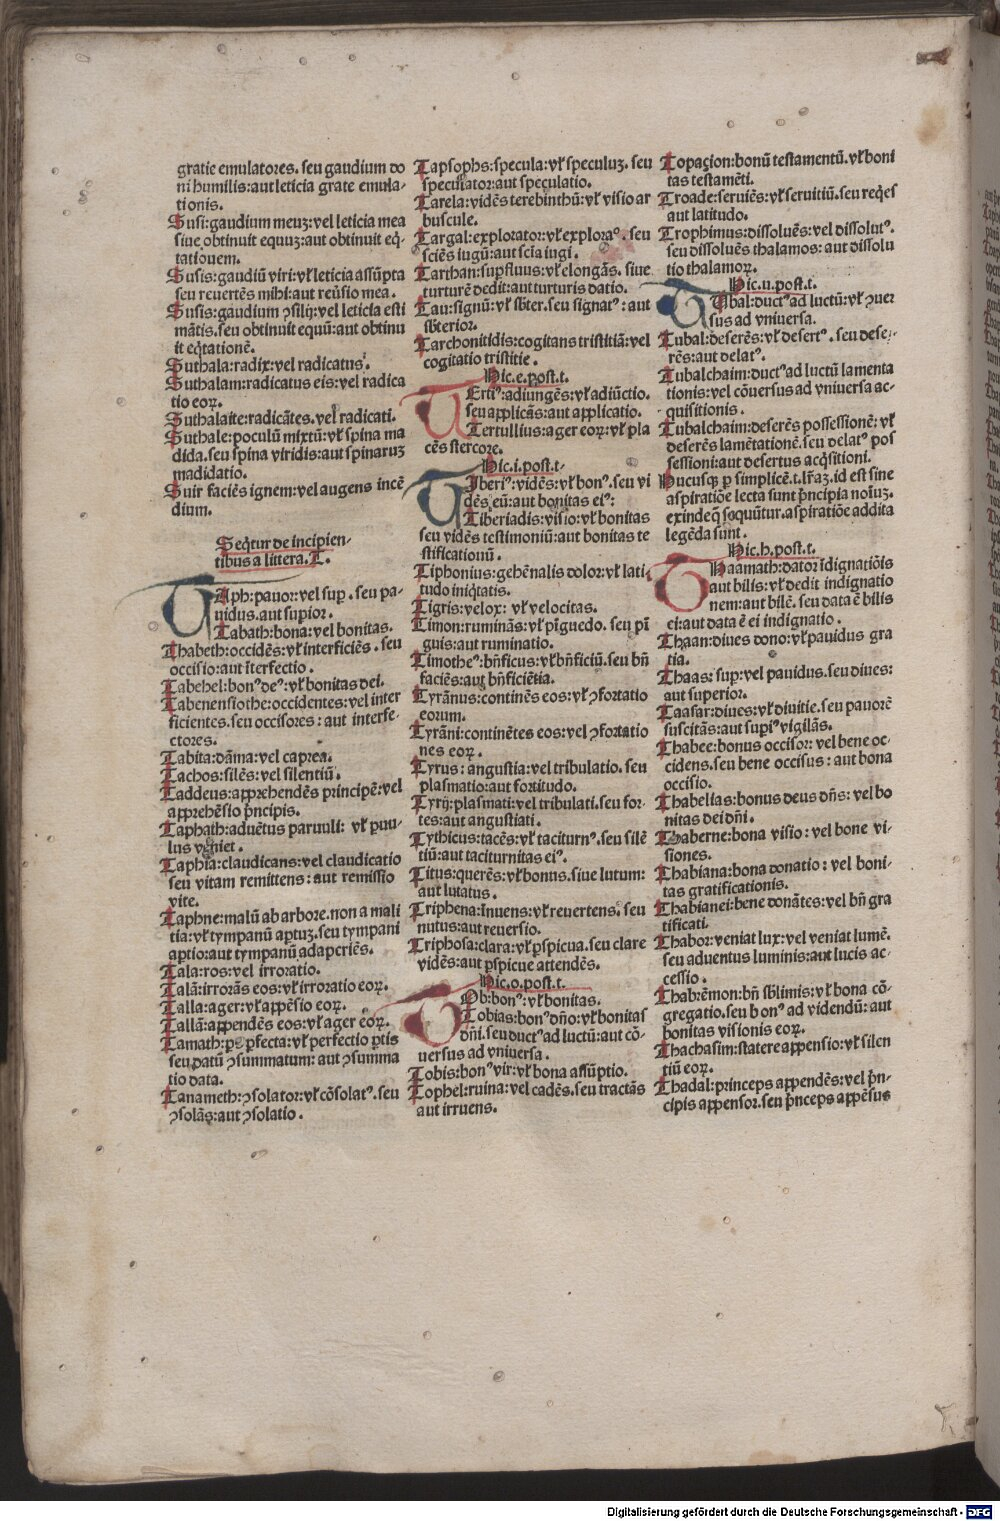 gratie emulatores. seu gaudium do
ni humilis: aut leticia grate emula-
tionis.
Susi: gaudium meuꝫ: vel leticia mea
siue obtinuit equuꝫ: aut obtinuit eq̃-
tationem.
Susis: gaudiũ viri: vł leticia assũpta
seu reuertẽs mihi: aut reũsio mea.
Susis: gaudium ꝯsilij: vel leticia esti
mãtis. seu obtinuit equũ: aut obtinu
it eq̃tationẽ.
Suthala: radix: vel radicatus.
Suthalam: radicatus eis: vel radica
tio eoꝝ.
Suthalaite: radicãtes. vel radicati.
Suthale: poculũ mixtũ: vł spina ma
dida. seu spina viridis: aut spinaruꝫ
madidatio.
Suir faciẽs ignem: vel augens incẽ
dium.
Seq̃tur de incipien-
tibus a littera. T.
TAph: pauor: vel suꝑ. seu pa-
uidus. aut supior.
Tabath: bona: vel bonitas.
Thabeth: occidẽs: vł interficiẽs. seu
occisio: aut ĩterfectio.
Tabehel: bonꝰ deꝰ: vł bonitas dei.
Tabenensiothe: occidentes: vel inter
ficientes. seu occisores: aut interfe-
ctores.
Tabita: dãma: vel caprea.
Tachos: silẽs: vel silentiũ.
Taddeus: apprehendẽs principẽ: vel
apprehẽsio p̃ncipis.
Taphath: aduẽtus paruuli: vł ꝑuu-
lus veniet.
Taphia: claudicans: vel claudicatio
seu vitam remittens: aut remissio
vite.
Taphne: malũ ab arbore. non a mali
tia: vł tympanũ aptuꝫ. seu tympani
aptio: aut tympanũ adaperiẽs.
Tala: ros: vel irroratio.
Talã: irrorãs eos: vł irroratio eoꝝ.
Talla: ager: vł appẽsio eoꝝ.
Tallã: appendẽs eos: vł ager eoꝝ.
Tamath: ꝑs ꝑfecta: vł perfectio ꝑtis
seu datũ ꝯsummatum: aut ꝯsumma
tio data.
Tanameth: ꝯsolator: vł cõsolatꝰ. seu
ꝯsolãs: aut ꝯsolatio.
Tapsophs: specula: vł speculuꝫ. seu
speculator: aut speculatio.
Tarela: vidẽs terebinthũ: vł visio ar
buscule.
Targal: explorator: vł exploraꝰ. seu
sciẽs iugũ: aut scĩa iugi.
Tarthan: supfluus: vł elongãs. siue
turturẽ dedit: aut turturis datio.
Tau: signũ: vł sb̃ter. seu signatꝰ: aut
sb̃terior.
Tarchonitidis: cogitans tristitiã: vel
cogitatio tristitie.
Hic. e. post. t.
TErtiꝰ: adiungẽs: vł adiũctio.
seu applicãs: aut applicatio.
Tertullius: ager eoꝝ: vł pla
cẽs stercore.
Hic. i. post. t.
TIberiꝰ: vidẽs: vł bonꝰ. seu vi
dẽs eũ: aut bonitas eiꝰ:
Tiberiadis: visio: vł bonitas
seu vidẽs testimoniũ: aut bonitas te
stificationũ.
Tiphonius: gehẽnalis dolor: vł lati-
tudo iniq̃tatis.
Tigris: velox: vł velocitas.
Timon: ruminãs: vł pĩguedo. seu pĩ
guis: aut ruminatio.
Timotheꝰ: bñficus: vł bñficiũ. seu bñ
faciẽs: aut bñficiẽtia.
Tyrãnus: continẽs eos: vł ꝯfortatio
eorum.
Tyrãni: continẽtes eos: vel ꝯfortatio
nes eoꝝ.
Tyrus: angustia: vel tribulatio. seu
plasmatio: aut fortitudo.
Tyrij: plasmati: vel tribulati. seu for-
tes: aut angustiati.
Tythicus: tacẽs: vł taciturnꝰ. seu silẽ
tiũ: aut taciturnitas eiꝰ.
Titus: querẽs: vł bonus. siue lutum:
aut lutatus.
Triphena: ĩnuens: vł reuertens. seu
nutus: aut reuersio.
Triphosa: clara: vł ꝑspicua. seu clare
vidẽs: aut ꝑspicue attendẽs.
Hic. o. post. t.
TOb: bonꝰ: vł bonitas.
Tobias: bonꝰ dño: vł bonitas
dñi. seu ductꝰ ad luctũ: aut cõ-
uersus ad vniuersa.
Tobis: bonꝰ vir: vł bona assũptio.
Tophel: ruina: vel cadẽs. seu tractãs
aut irruens.
Topaçion: bonũ testamentũ. vł boni
tas testamẽti.
Troade: seruiẽs: vł seruitiũ. seu req̃es
aut latitudo.
Trophimus: dissoluẽs: vel dissolutꝰ.
seu dissoluẽs thalamos: aut dissolu
tio thalamoꝝ.
Hic. u. post. t.
TUbal: ductꝰ ad luctũ: vł ꝯuer
sus ad vniuersa.
Tubal: deserẽs: vł desertꝰ. seu defe-
rẽs: aut delatꝰ.
Tubalchaim: ductꝰ ad luctũ lamenta
tionis: vel cõuersus ad vniuersa ac-
quisitionis.
Tubalchaim: deserẽs possessionẽ: vł
deferẽs lamẽtationẽ. seu delatꝰ pos
sessioni: aut desertus acq̃sitioni.
Hucusqꝫ ꝑ simplicẽ. t. lr̃aꝫ. id est sine
aspiratiõe lecta sunt p̃ncipia noĩuꝫ.
exindeq̃ sequũtur. aspiratiõe addita
legẽda sunt.
Hic. h. post. t.
THaamath: dator ĩdignatiõis
aut bilis: vł dedit indignatio
nem: aut bilẽ. seu data ẽ bilis
ei: aut data ẽ ei indignatio.
Thaan: diues dono: vł pauidus gra
tia.
Thaas: suꝑ: vel pauidus. seu diues:
aut superior.
Taasar: diues: vł diuitie. seu pauorẽ
suscitãs: aut supiꝰ vigilãs.
Thabee: bonus occisor: vel bene oc-
cidens. seu bene occisus: aut bona
occisio.
Thabelias: bonus deus dñs: vel bo
nitas dei dñi.
Thaberne: bona visio: vel bone vi-
siones.
Thabiana: bona donatio: vel boni-
tas gratificationis.
Thabianei: bene donãtes: vel bñ gra
tificati.
Thabor: veniat lux: vel veniat lumẽ.
seu aduentus luminis: aut lucis ac-
cessio.
Thabrẽmon: bñ sb̃limis: vł bona cõ-
gregatio. seu bonꝰ ad videndũ: aut
bonitas visionis eoꝝ.
Thachasim: statere appensio: vł silen
tiũ eoꝝ.
Thadal: princeps appendẽs: vel p̃n-
cipis appensor. seu p̃nceps appẽsus
Digitalisierung gefördert durch die Deutsche Forschungsgemeinschaft - DFG